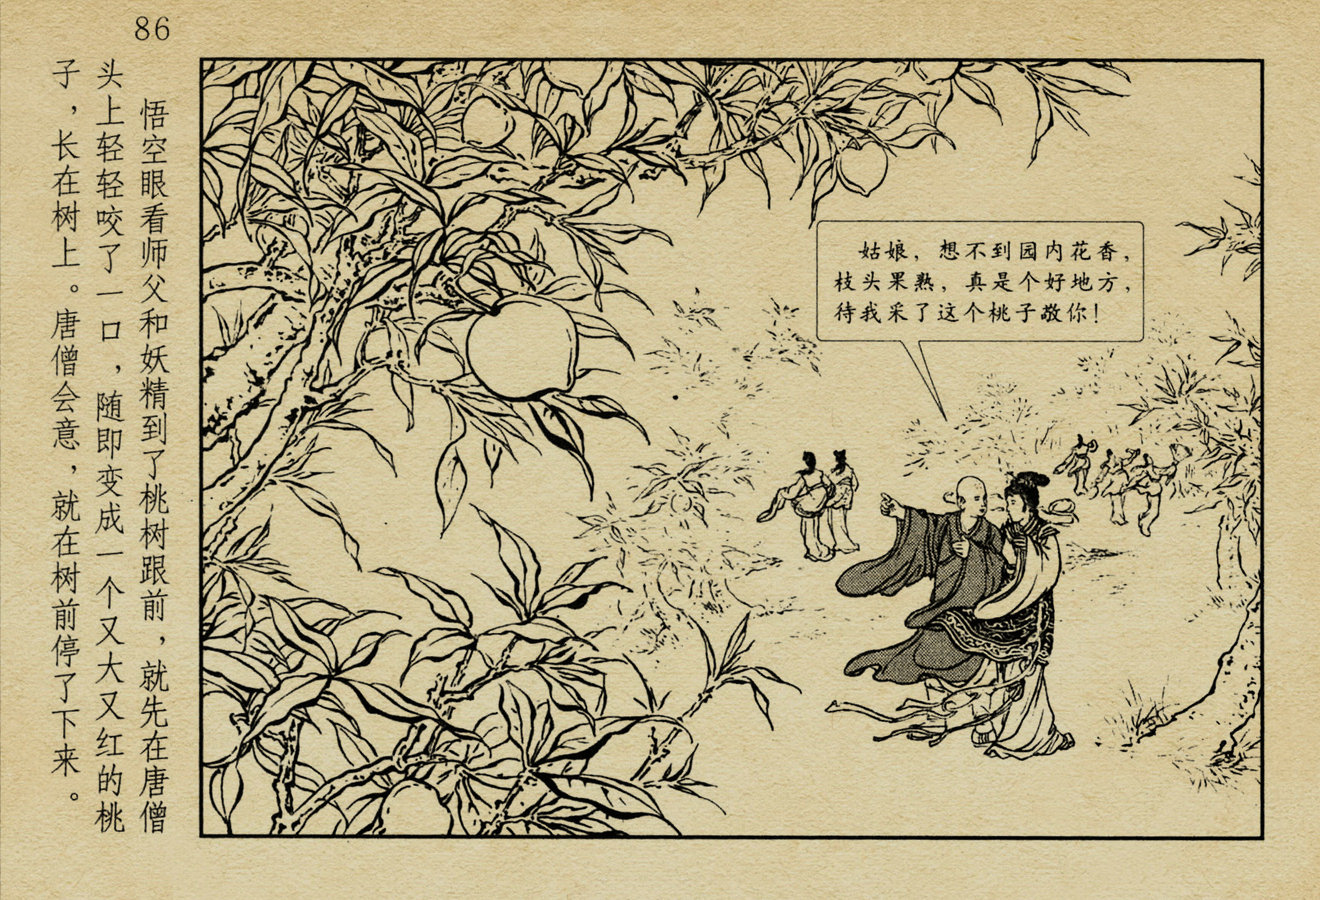 86
悟空眼看师父和妖精到了桃树跟前，就先在唐僧
头上轻轻咬了一口，随即变成一个又大又红的桃
子，长在树上。唐僧会意，就在树前停了下来。
姑娘，想不到园内花香，
枝头果熟，真是个好地方，
待我采了这个桃子敬你！